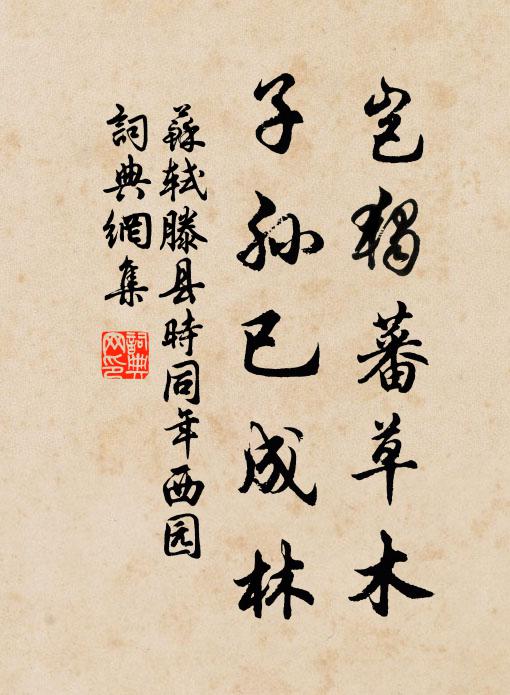 岂独蕃草木
子孙已成林
蘇轼滕县時同年西园
詞典網集
詞典网印